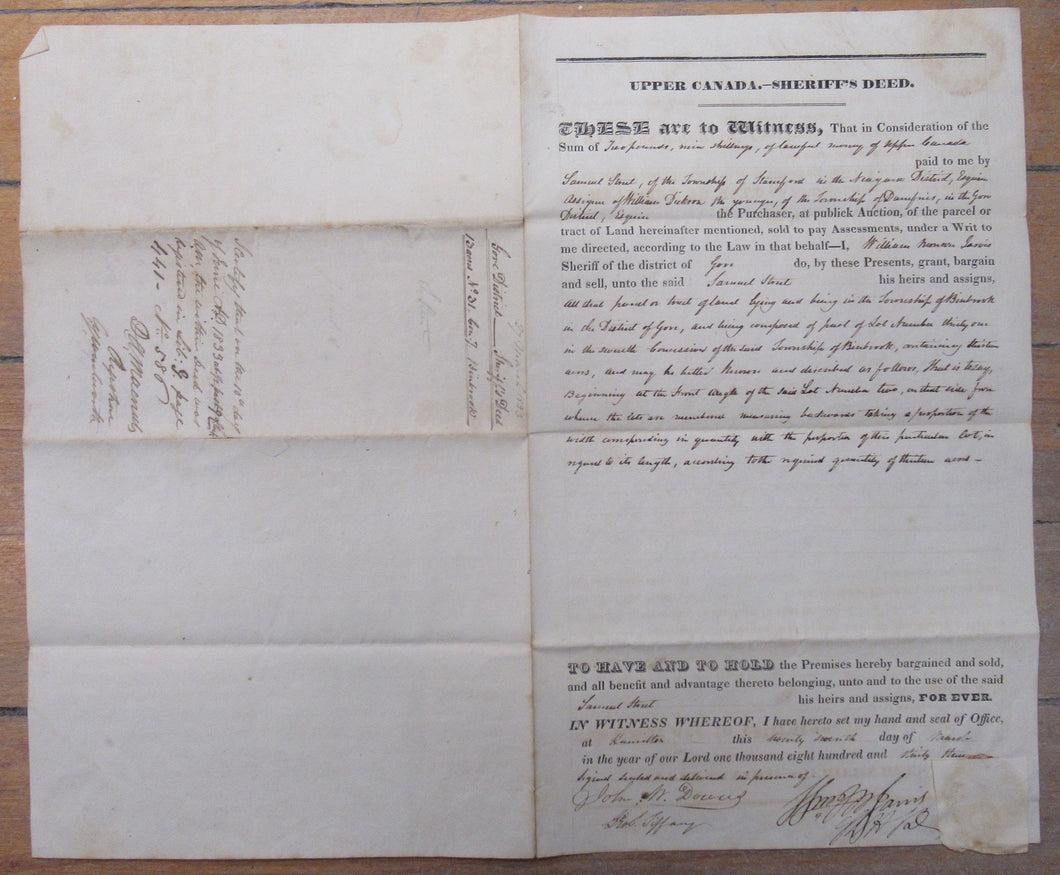 UPPER CANADA.—SHERIFF'S DEED.
THESE are to Witness, That in Consideration of the
Sum of Two pounds, nine shillings, of lawful money of Upper Canada
paid to me by
Samuel Street, of the Township of Stamford in the Niagara District, Esquire
Assignee of William Dickson the younger, of the Township of Dumfries, in the Gore
District, Esquire the Purchaser, at publick Auction, of the parcel or
tract of Land hereinafter mentioned, sold to pay Assessments, under a Writ to
me directed, according to the Law in that behalf—I, William Munson Jarvis
Sheriff of the district of Gore do, by these Presents, grant, bargain
and sell, unto the said Samuel Street his heirs and assigns,
all that parcel or tract of land lying and being in the Township of Binbrook
in the District of Gore, and being composed of part of Lot Number thirty one
in the seventh Concession of the said Township of Binbrook, containing thirteen
acres, and may be better known and described as follows, that is to say,
Beginning at the front angle of the said Lot Number two, on that side from
whence the lots are numbered measuring backwards taking a proportion of the
width corresponding in quantity with the proportion of the particular Lot, in
regard to its length, according to the required quantity of thirteen acres —
TO HAVE AND TO HOLD the Premises hereby bargained and sold,
and all benefit and advantage thereto belonging, unto and to the use of the said
Samuel Street his heirs and assigns, FOR EVER.
IN WITNESS WHEREOF, I have hereto set my hand and seal of Office,
at Hamilton this twenty seventh day of March
in the year of our Lord one thousand eight hundred and thirty three
Signed sealed and delivered in presence of
John W. Downs
Geo. S. Tiffany
Wm M Jarvis
Gore District — Sheriff's Deed
13 acres No 31. Con 7. Binbrook
I certify that on the 18th day
of June AD 1833
the within deed was
registered in Lib. G page
441 - No 586
Registrar
Wentworth